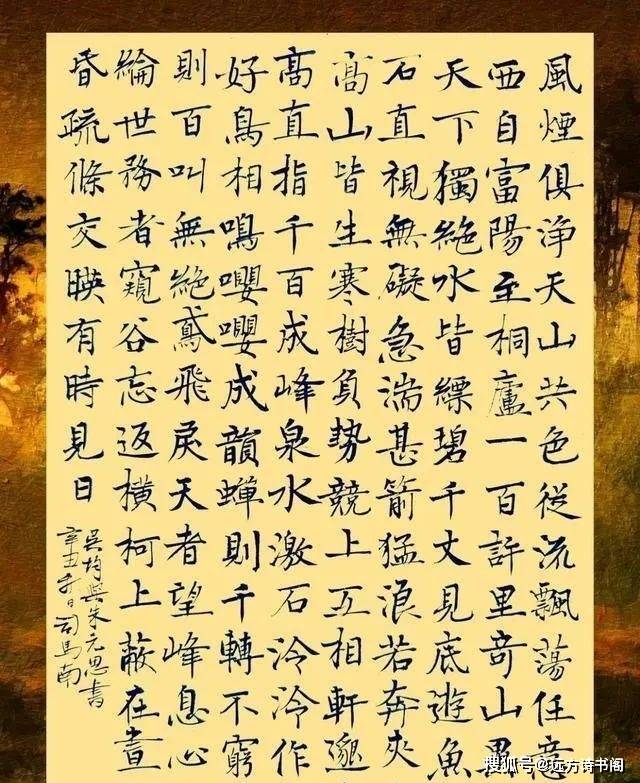 風煙俱淨天山共色從流飄蕩任意
西自富陽至桐廬一百許里奇山異
天下獨絕水皆縹碧千丈見底遊魚
石直視無礙急湍甚箭猛浪若奔夾
高山皆生寒樹負勢競上互相軒邈
高直指千百成峰泉水激石泠泠作
好鳥相鳴嚶嚶成韻蟬則千轉不窮
則百叫無絕鳶飛戾天者望峰息心
綸世務者窺谷忘返橫柯上蔽在晝
昏疏條交映有時見日
吳均與朱元思書
辛丑冬日司馬南
搜狐号@远方诗书阁